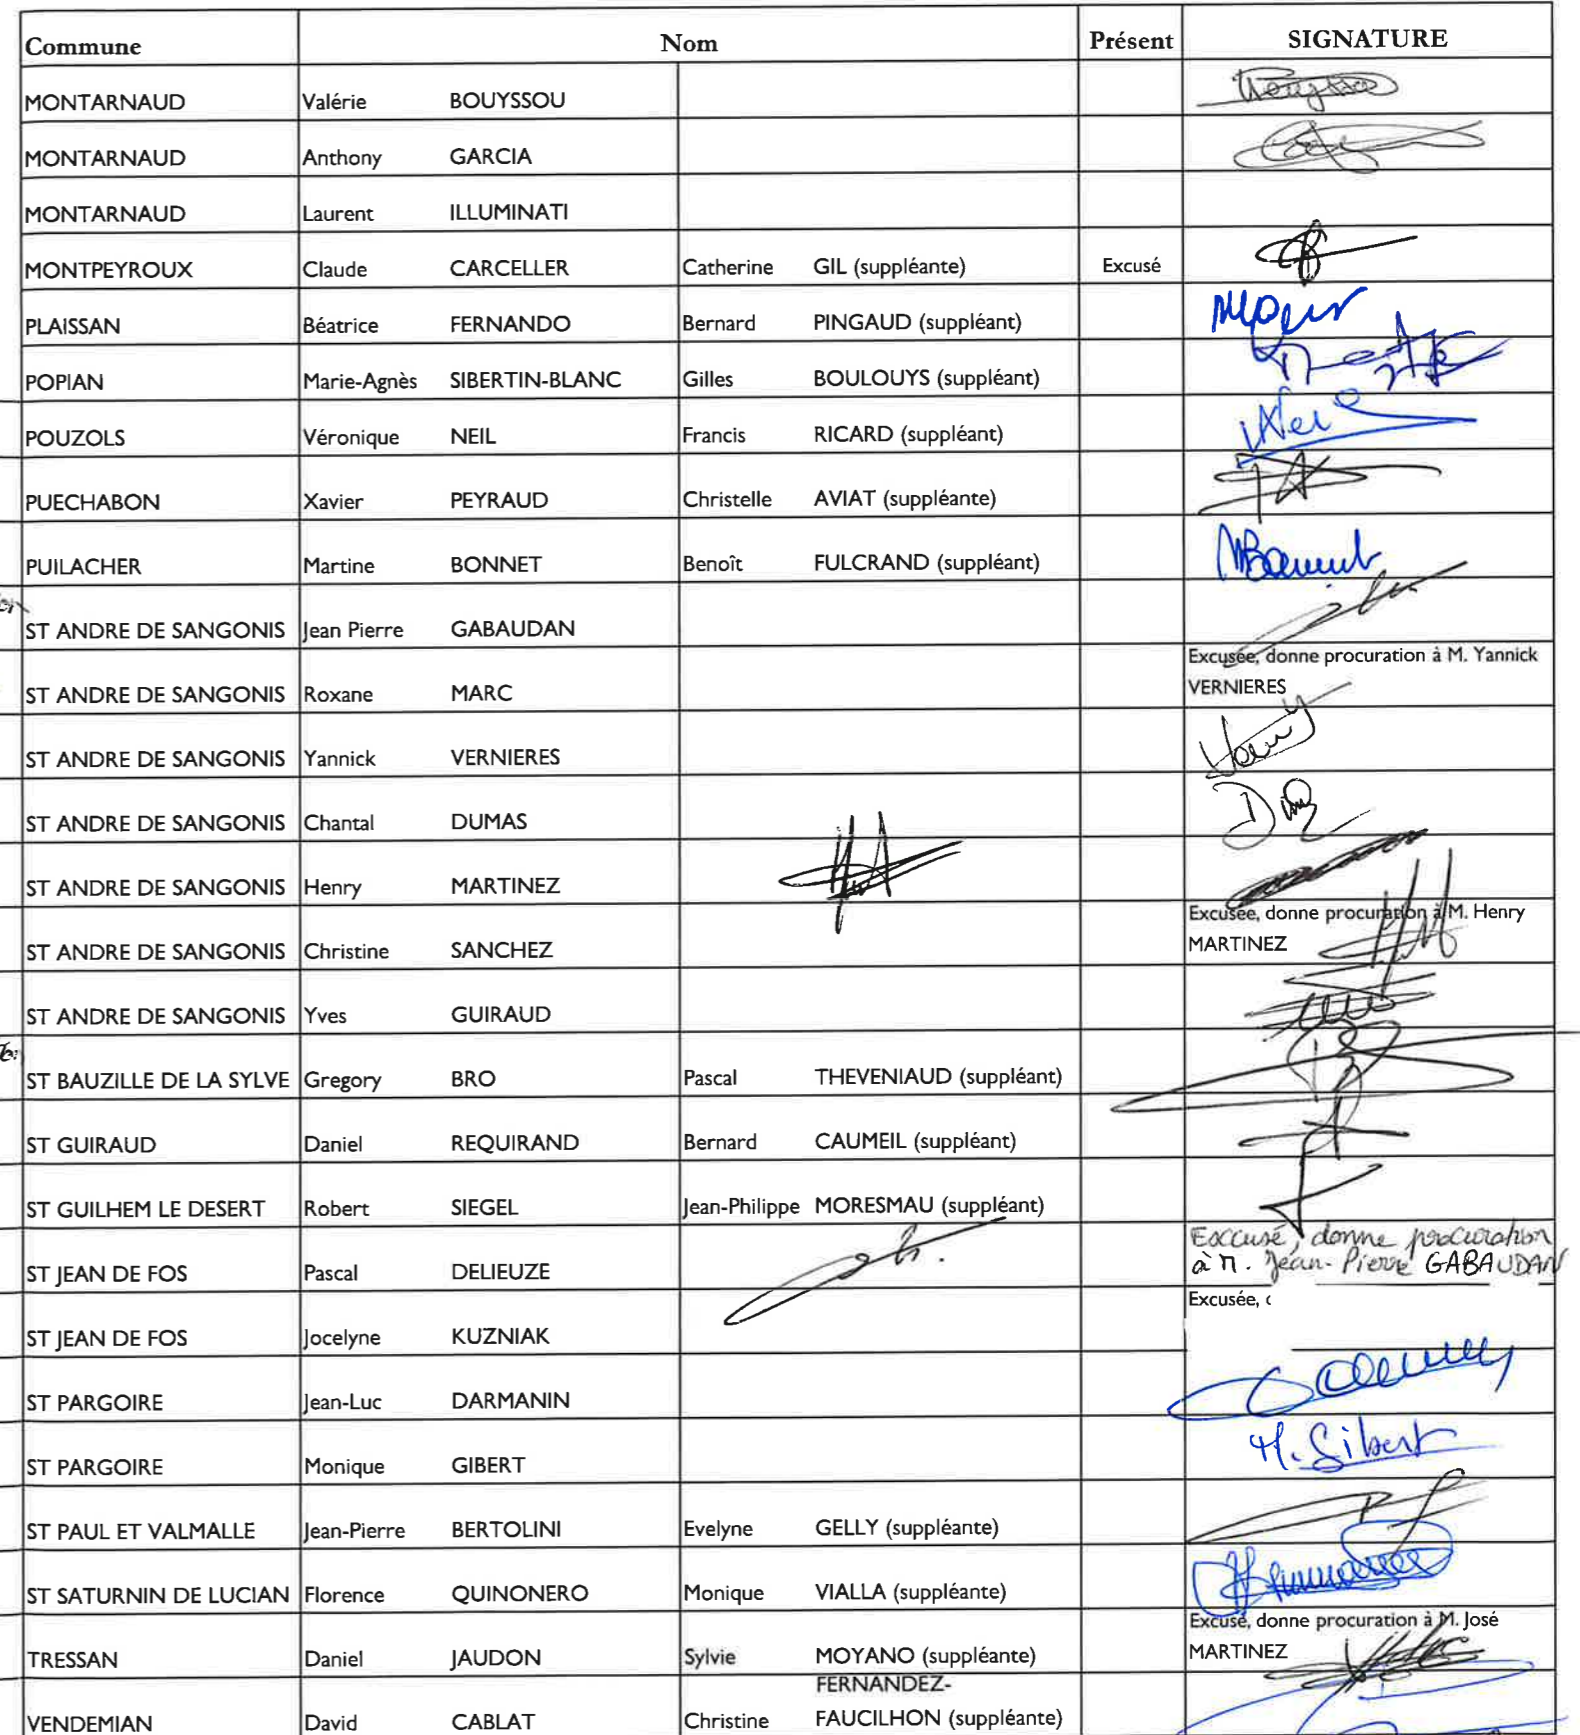 Commune Nom Présent SIGNATURE
MONTARNAUD Valérie BOUYSSOU
MONTARNAUD Anthony GARCIA
MONTARNAUD Laurent ILLUMINATI
MONTPEYROUX Claude CARCELLER Catherine GIL (suppléante) Excusé
PLAISSAN Béatrice FERNANDO Bernard PINGAUD (suppléant)
POPIAN Marie-Agnès SIBERTIN-BLANC Gilles BOULOUYS (suppléant)
POUZOLS Véronique NEIL Francis RICARD (suppléant)
PUECHABON Xavier PEYRAUD Christelle AVIAT (suppléante)
PUILACHER Martine BONNET Benoît FULCRAND (suppléant)
ST ANDRE DE SANGONIS Jean Pierre GABAUDAN
Excusée, donne procuration à M. Yannick
ST ANDRE DE SANGONIS Roxane MARC VERNIERES
ST ANDRE DE SANGONIS Yannick VERNIERES
ST ANDRE DE SANGONIS Chantal DUMAS
ST ANDRE DE SANGONIS Henry MARTINEZ
Excusée, donne procuration à M. Henry
ST ANDRE DE SANGONIS Christine SANCHEZ MARTINEZ
ST ANDRE DE SANGONIS Yves GUIRAUD
ST BAUZILLE DE LA SYLVE Gregory BRO Pascal THEVENIAUD (suppléant)
ST GUIRAUD Daniel REQUIRAND Bernard CAUMEIL (suppléant)
ST GUILHEM LE DESERT Robert SIEGEL Jean-Philippe MORESMAU (suppléant)
Excusé, donne procuration
ST JEAN DE FOS Pascal DELIEUZE à M. Jean-Pierre GABAUDAN
Excusée,
ST JEAN DE FOS Jocelyne KUZNIAK
ST PARGOIRE Jean-Luc DARMANIN
ST PARGOIRE Monique GIBERT M. Gibert
ST PAUL ET VALMALLE Jean-Pierre BERTOLINI Evelyne GELLY (suppléante)
ST SATURNIN DE LUCIAN Florence QUINONERO Monique VIALLA (suppléante)
Excusé, donne procuration à M. José
TRESSAN Daniel JAUDON Sylvie MOYANO (suppléante) MARTINEZ
FERNANDEZ-
VENDEMIAN David CABLAT Christine FAUCILHON (suppléante)